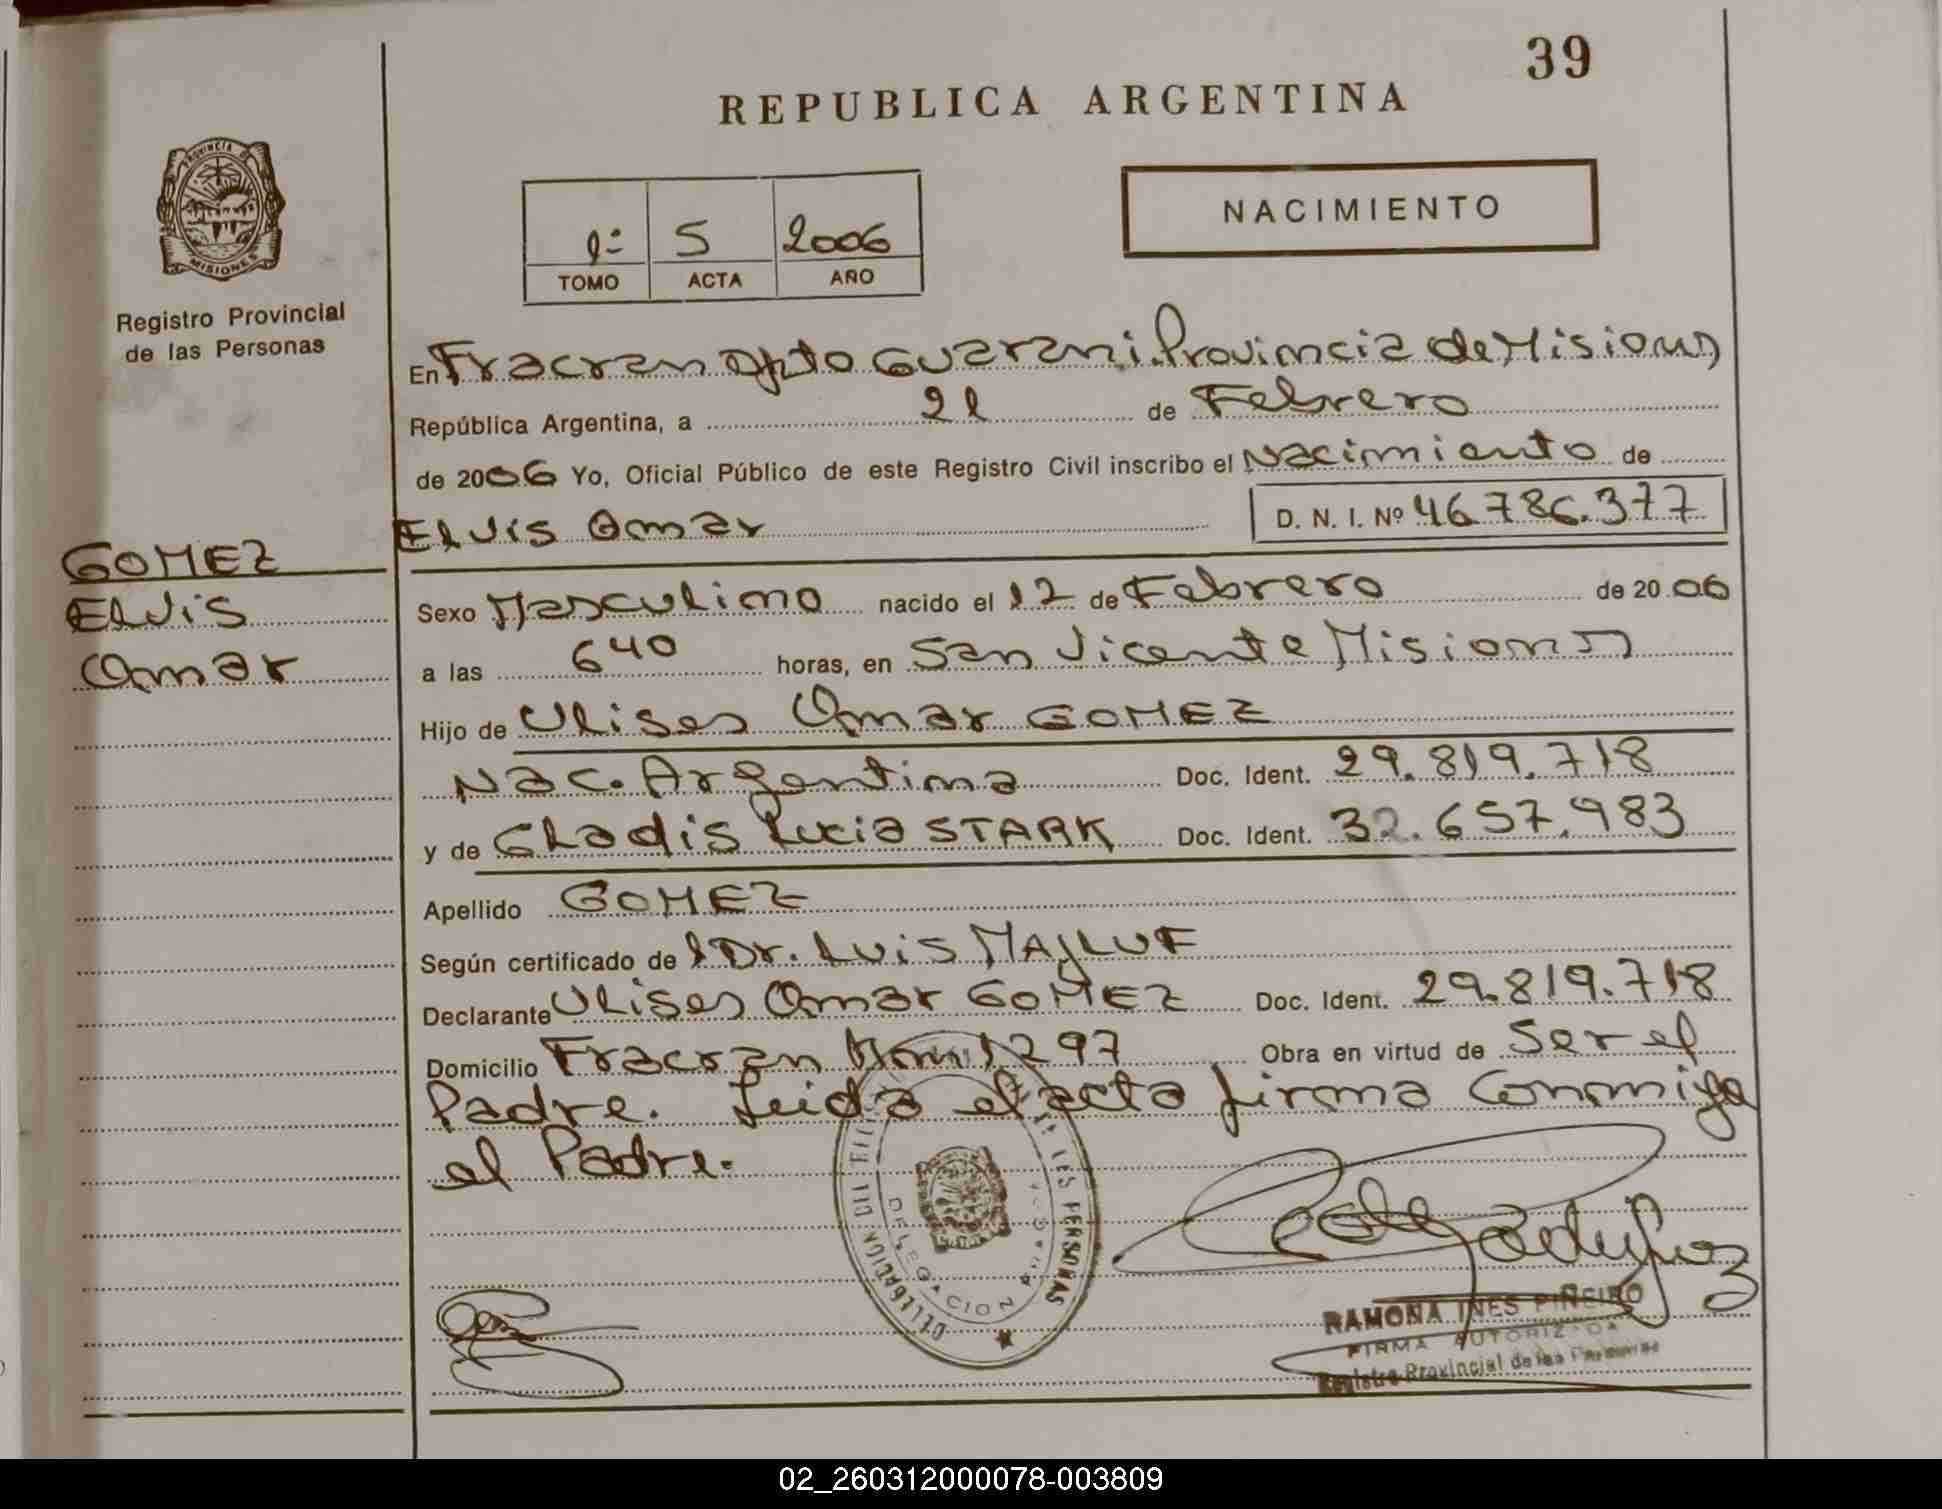 39
REPUBLICA ARGENTINA
PROVINCIA DE
MISIONES
Registro Provincial
de las Personas
NACIMIENTO
1º 5 2006
TOMO ACTA AÑO
En Fracran Dpto Guarani. Provincia de Misiones
República Argentina, a 21 de Febrero
de 2006 Yo, Oficial Público de este Registro Civil inscribo el Nacimiento de
Elvis Omar D. N. I. Nº 46.786.377
GOMEZ
Elvis
Omar
Sexo Masculino nacido el 12 de Febrero de 20 06
a las 640 horas, en San Vicente Misiones
Hijo de Ulises Omar GOMEZ
Nac. Argentina Doc. Ident. 29.819.718
y de Gladis Lucia STARK Doc. Ident. 32.657.983
Apellido GOMEZ
Según certificado del Dr. Luis MAJLUF
Declarante Ulises Omar GOMEZ Doc. Ident. 29.819.718
Domicilio Fracran Km 1297 Obra en virtud de ser el
Padre. Leida el acta firma conmigo
el Padre.
DE LAS PERSONAS
DELEGACION
RAMONA INES PIÑEIRO
FIRMA AUTORIZADA
Registro Provincial de las Personas
02_260312000078-003809